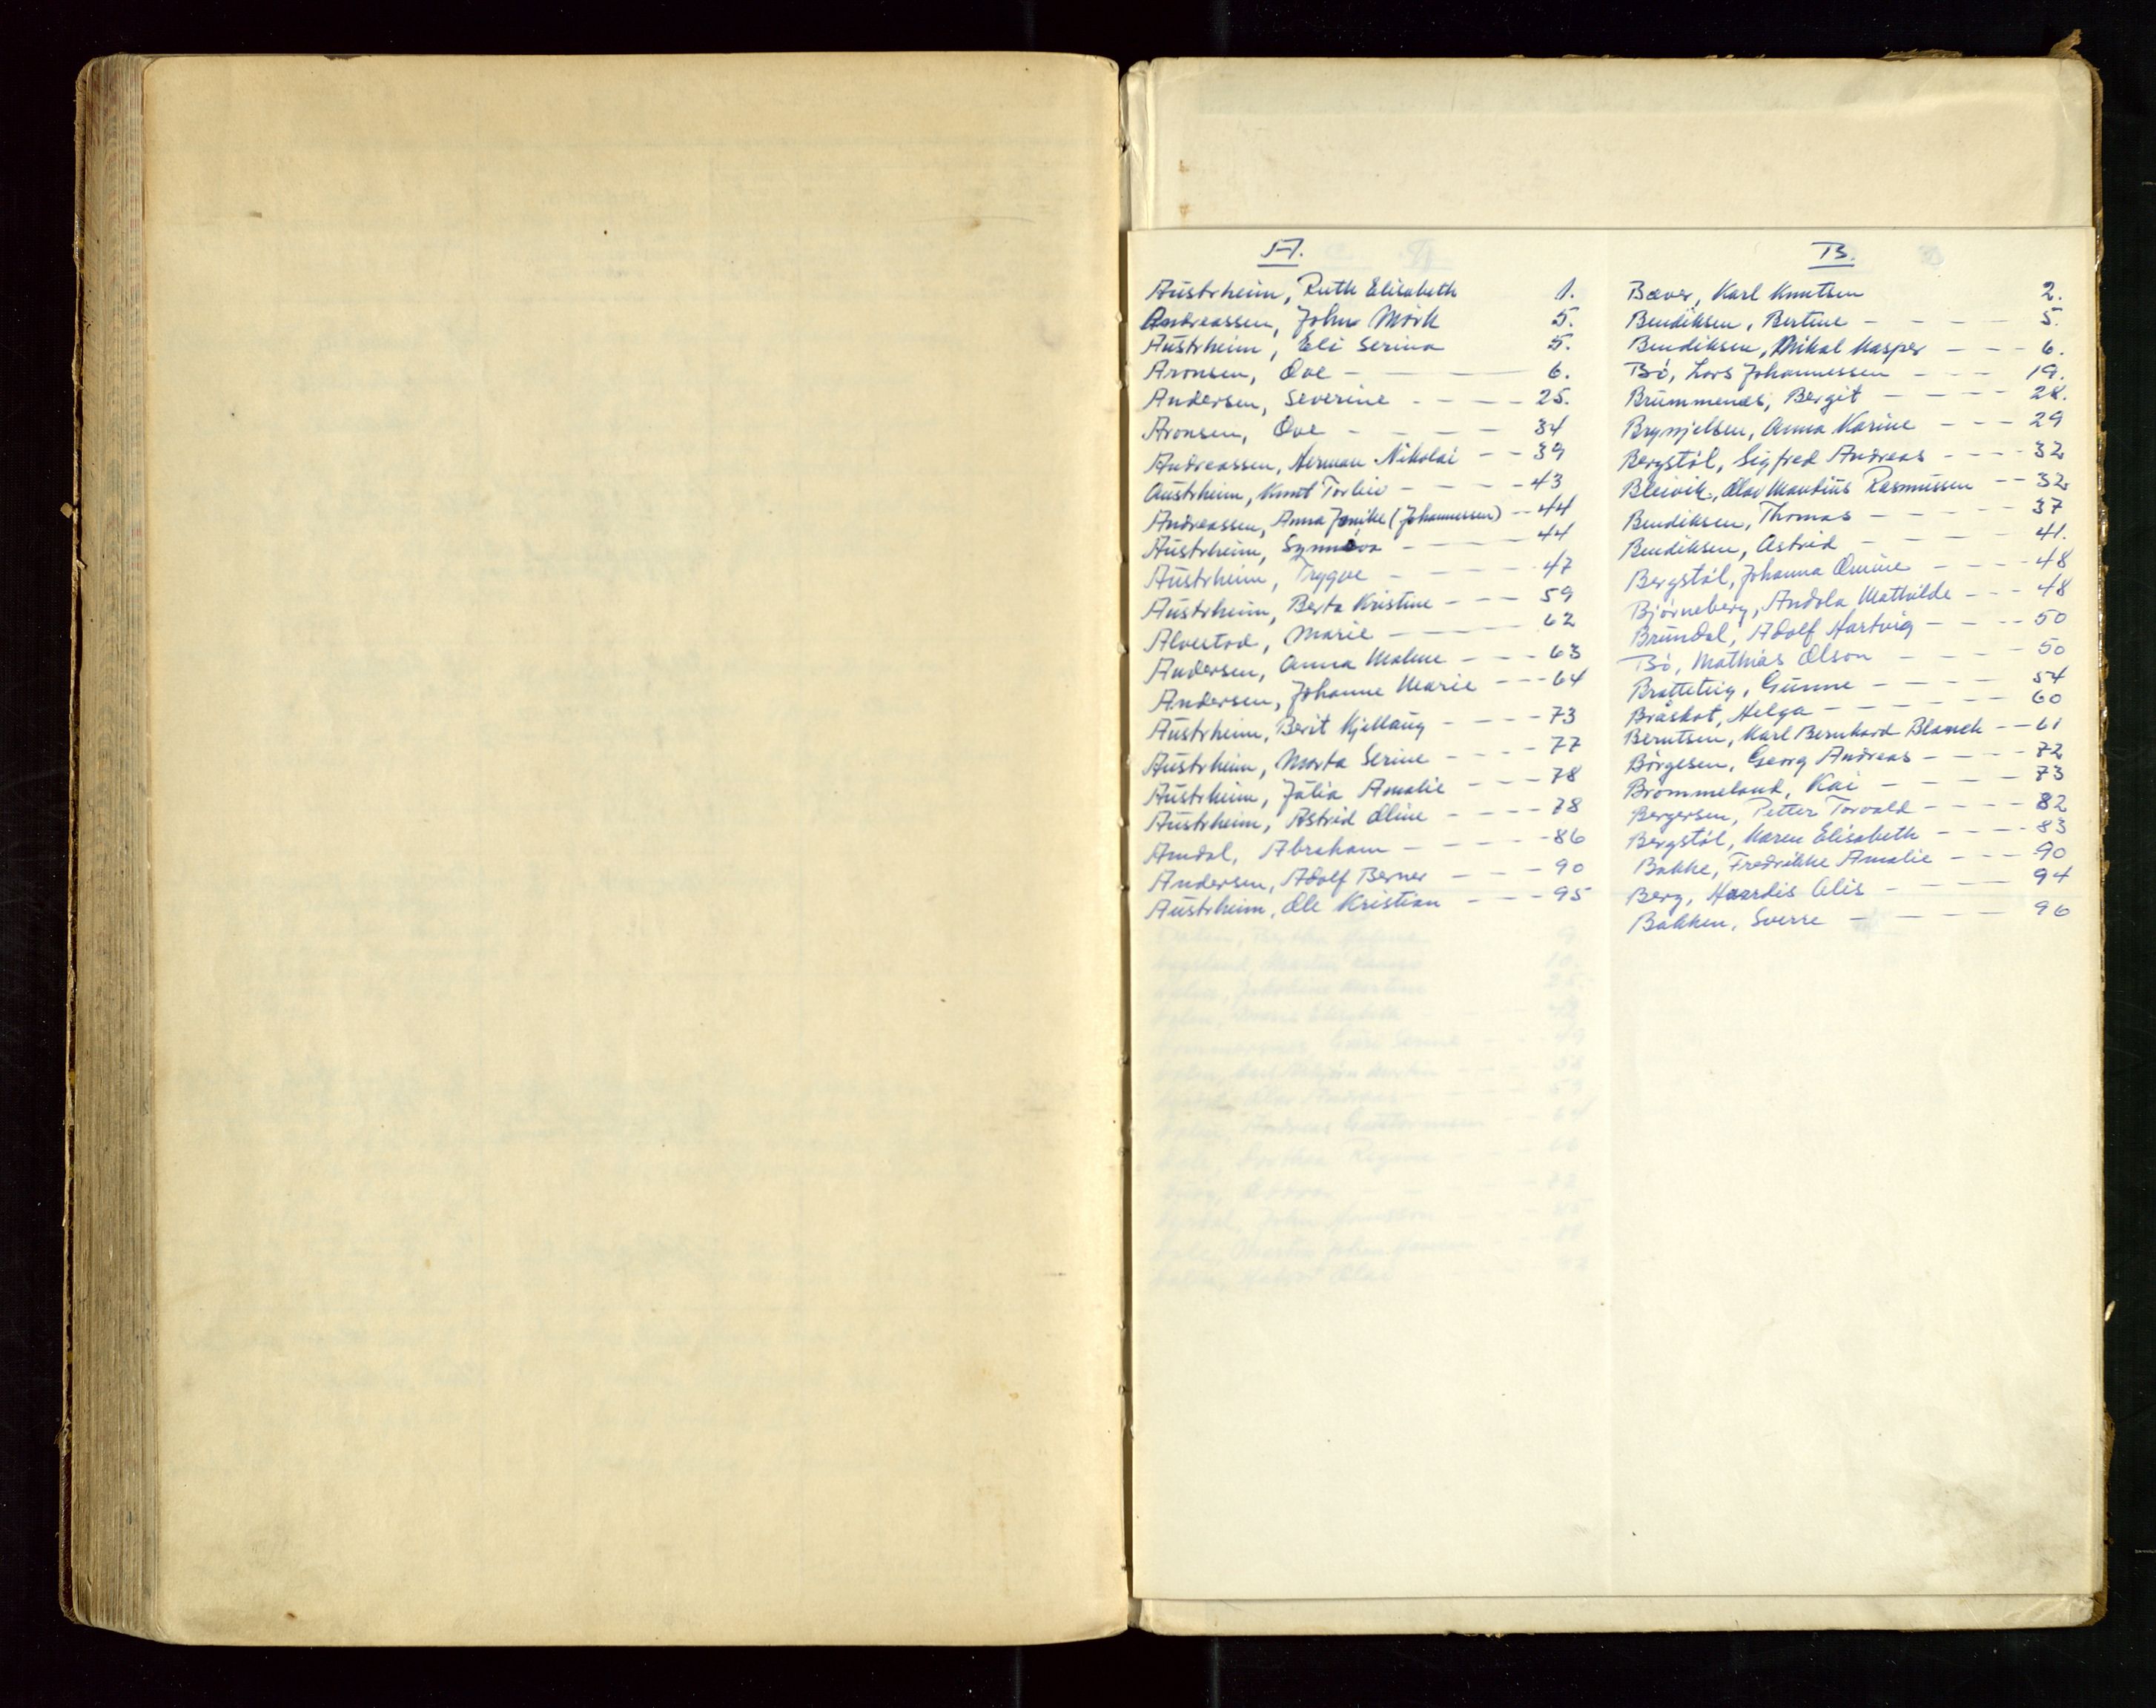 A.
Austrheim, Ruth Elisabeth 1.
Andreassen, John Mörk 5.
Austrheim, Eli Serina 5.
Aronsen, Ove - — — 6.
Andersen, Severine - - — — 25.
Aronsen, Ove - - — — 34
Andreassen, Herman Nikolai - - 39
Austrheim, Knut Torleiv - - - - 43
Andreassen, Anna Jenike (Johannessen) - - 44
Austrheim, Synnöva - - - - 44
Austrheim, Trygve - - - - 47
Austrheim, Berta Kristine - - - 59
Alvestad, Marie - - - - 62
Andersen, Anna Malene - - - 63
Andersen, Johanne Marie - - - 64
Austrheim, Berit Kjellaug - - - - 73
Austrheim, Marta Serine - - - - 77
Austrheim, Julia Amalie - - - 78
Austrheim, Astrid Oline - - - - 78
Amdal, Abraham - - - - - 86
Andersen, Adolf Berner - - - 90
Austrheim, Ole Kristian - - - 95
B.
Baver, Karl Knutsen 2.
Bendiksen, Bertine - - - - 5.
Bendiksen, Mikal Kasper - - - 6.
Bö, Lars Johannessen - - - 19.
Brummenes, Bergit - - - - 28.
Brynjelsen, Anna Karine - - - 29
Bergstöl, Sigfred Andreas - - - - 32
Bleivik, Olav Mautius Rasmussen - - 32
Bendiksen, Thomas - - - - 37
Bendiksen, Astrid - - - - 41.
Bergstöl, Johanna - - - - 48
Björneberg, Andola Mathilde - - - 48
Brundal, Adolf Hartvig - - - - 50
Bö, Mathias Olson - - - - 50
Bratteteig, Gunne - - - - 54
Bråskot, Helga - - - - - 60
Berntsen, Karl Bernhard Blanck - - 61
Börgesen, Georg Andreas - - - 72
Brommeland, Kai - - - - 73
Bergersen, Petter Torvald - - - - 82
Bergstöl, Karen Elisabeth - - - - 83
Bakke, Fredrikke Amalie - - - 90
Berg, Haardis Alis - - - - 94
Bakken, Sverre - - - - 96